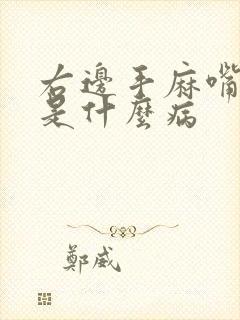 右邊手麻嘴
是什麼病
鄭威